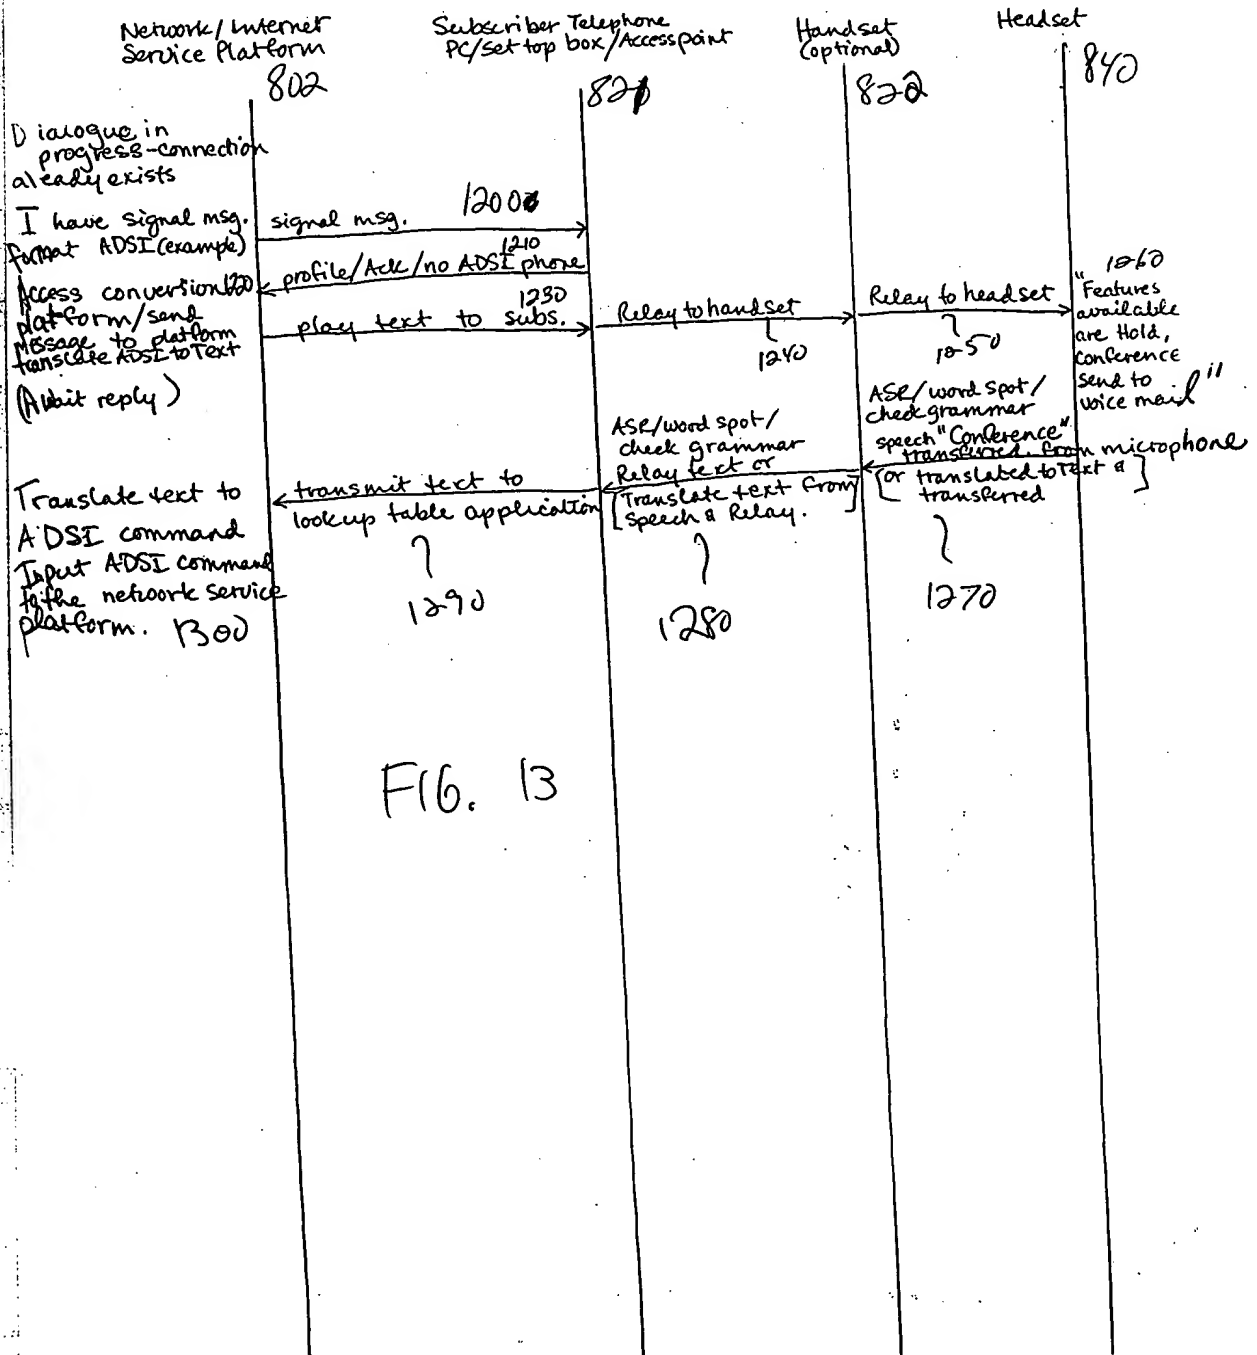 Network/Internet
Service Platform
802
Subscriber Telephone
PC/set top box/Access point
821
Handset
(optional)
822
Headset
840
Dialogue in
progress-connection
already exists
I have signal msg.
format ADSI (example)
signal msg. 1200
profile/Ack/no ADSI phone
1210
Access conversion 1220
platform/send
message to platform
translate ADSI to Text
(Await reply)
play text to subs.
1230
Relay to handset
1240
Relay to headset
1250
1260
"Features
available
are Hold,
conference
send to
voice mail"
ASR/word spot/
check grammar
speech "Conference"
transferred from microphone
[or translated to Text &
transferred]
1270
ASR/word spot/
check grammar
Relay text or
[Translate text from
speech & Relay.]
1280
transmit text to
lookup table application
1290
Translate text to
ADSI command
Input ADSI command
to the network service
platform. 1300
FIG. 13